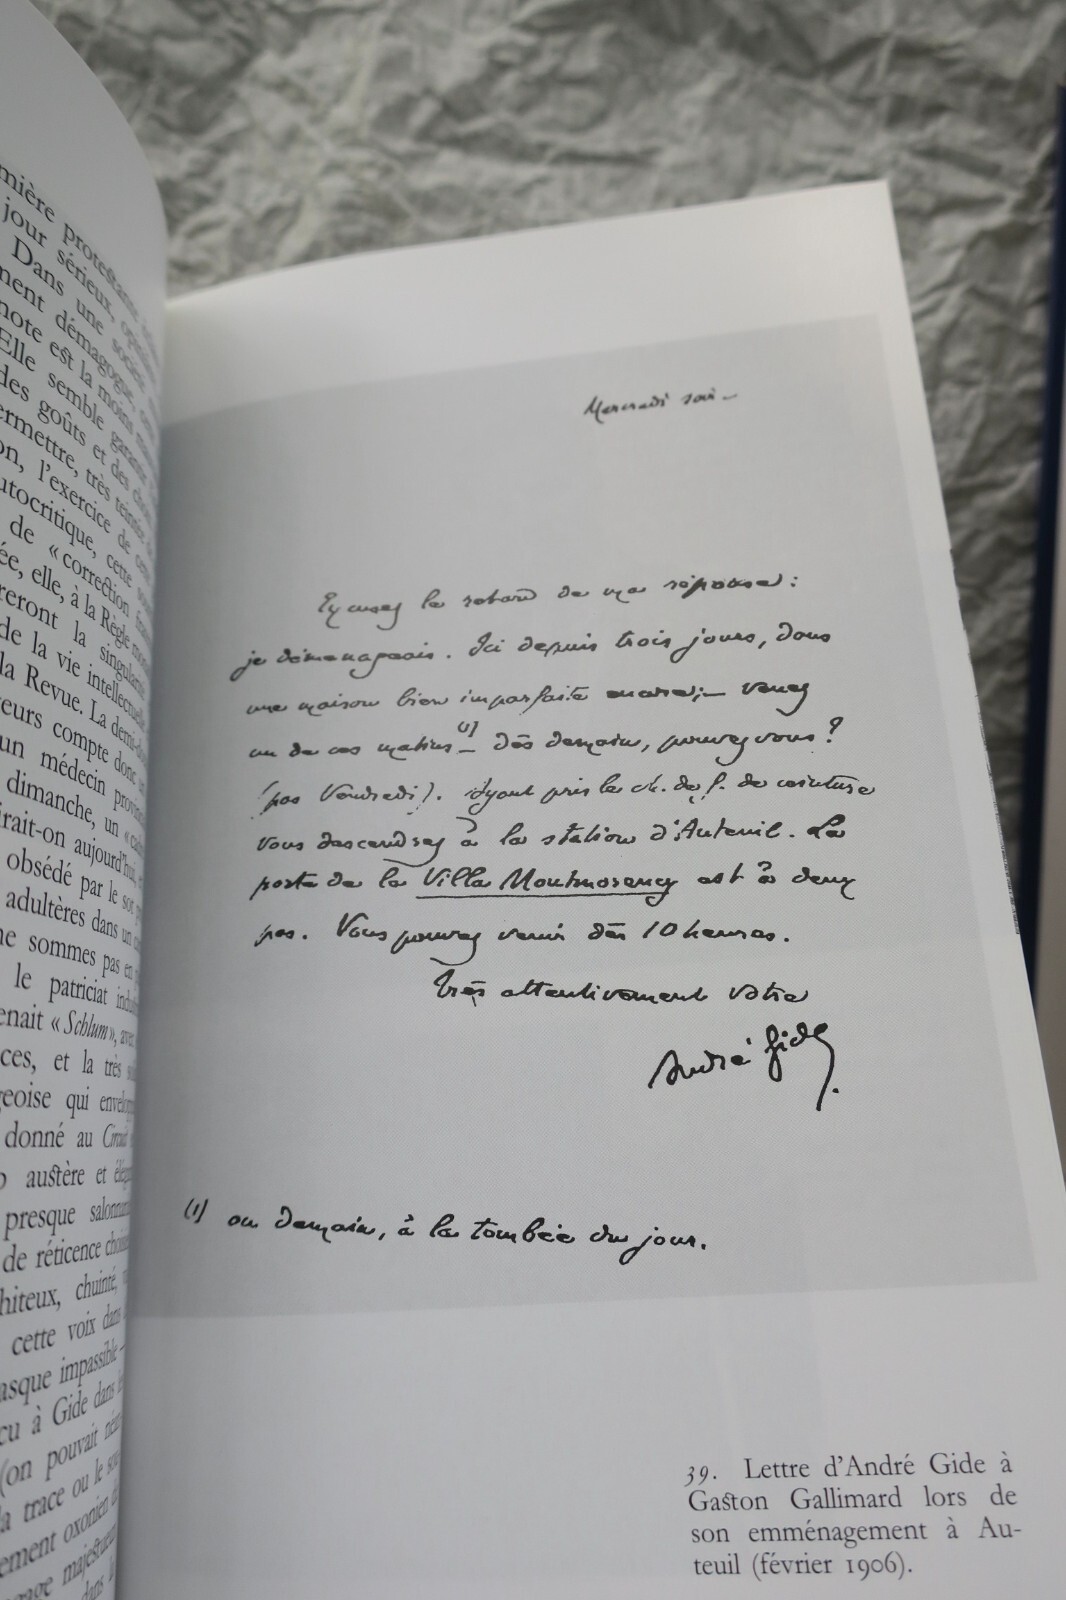 mière protestante
jour sérieux,
Dans une société
ment démagogue,
note est la moins
Elle semble garantir
des goûts et des choix
ermettre, très teintée
on, l'exercice de cette
utocritique, cette
de « correction
ée, elle, à la Règle
reront la singularité
de la vie intellectuelle
la Revue. La
eurs compte donc un
un médecin
dimanche, un
irait-on aujourd'hui,
obsédé par le sot
adultères dans un
ne sommes pas en
le patriciat
enait « Schlum »,
ces, et la très
geoise qui
donné au
austère et
presque
de réticence
hiteux, chuinté,
cette voix dans
asque impassible –
cu à Gide dans
(on pouvait
la trace ou le
ement oxonien
gage majestueux
dans
Mercredi soir –
Excusez le retard de ma réponse :
je déménageais. Ici depuis trois jours, dans
une maison bien imparfaite encore; – venez
un de ces matins (1) – dès demain, pouvez vous ?
(pas Vendredi). Ayant pris le ch. de f. de ceinture
vous descendrez à la station d'Auteuil. La
porte de la Villa Montmorency est à deux
pas. Vous pouvez venir dès 10 heures.
Très attentivement votre
André Gide.
(1) ou demain, à la tombée du jour.
39. Lettre d'André Gide à
Gaston Gallimard lors de
son emménagement à Au-
teuil (février 1906).